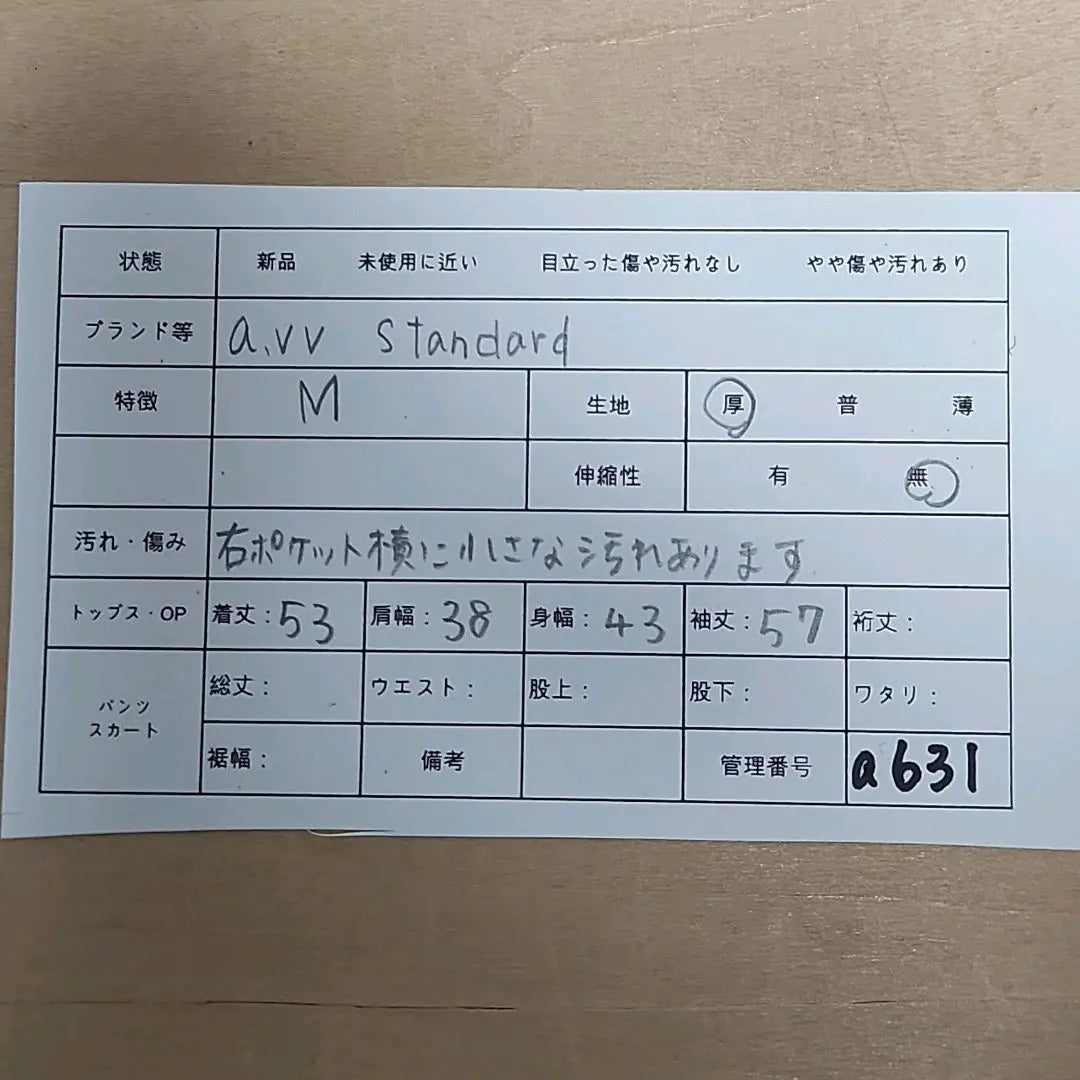 状態 新品 未使用に近い 目立った傷や汚れなし やや傷や汚れあり
ブランド等 a.vv standard
特徴 M 生地 厚 普 薄
伸縮性 有 無
汚れ・傷み 右ポケット横に小さな汚れあります
トップス・OP 着丈:53 肩幅:38 身幅:43 袖丈:57 裄丈:
パンツ
スカート
総丈: ウエスト: 股上: 股下: ワタリ:
裾幅: 備考 管理番号 a631